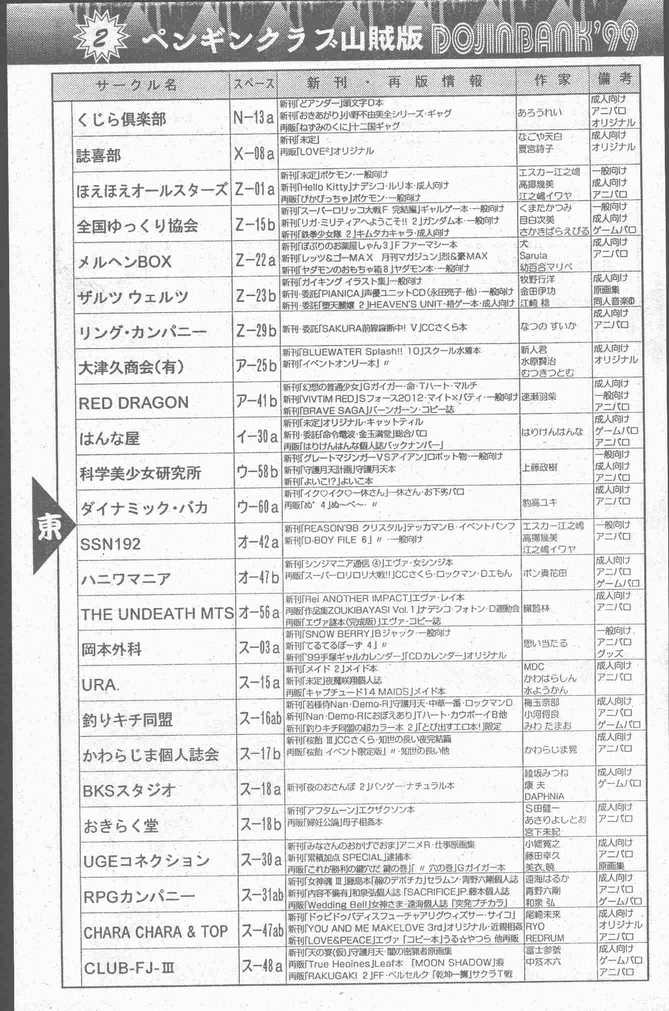 2 ペンギンクラブ山賊版 DOJINBANK'99
サークル名 スペース 新刊・再版情報 作家 備考
くじら倶楽部 N-13a 新刊「どアンダー」頭文字D本 あろうれい 成人向け
新刊「おきあがり」小野不由美全シリーズ・ギャグ アニパロ
再販「ねずみのくに」十二国ギャグ オリジナル
誌喜部 X-08a 新刊「未定」 なごや天白 成人向け
再販「LOVE²」オリジナル 鷺宮詩子 オリジナル
ほえほえオールスターズ Z-01a 新刊「未定」ポケモン・一般向け エスカー江之嶋 一般向け
新刊「Hello Kitty」ナデシコ・ルリ本・成人向け 高擶幾美 成人向け
再販「ぴかぴっちゃ」ポケモン・一般向け 江之嶋イワヤ アニパロ
全国ゆっくり協会 Z-15b 新刊「スーパーロリッコ大戦F 完結編」ギャルゲー本・一般向け くまたかつみ 一般向け
新刊「リガ・ミリティアへようこそ!! 2」ガンダム本・一般向け 目白次美 成人向け
新刊「鉄拳少女隊 2」キムタカキャラ・成人向け さかきばらえびる ゲームパロ
メルヘンBOX Z-22a 新刊「ぽぷりのお薬屋しゃん3」Fファーマシー本 犬 成人向け
新刊「レッツ&ゴーMAX 月刊マガジュン」烈&豪MAX Sarula アニパロ
新刊「ヤダモンのおもちゃ箱8」ヤダモン本・一般向け 幼百合マリベ
ザルツ ウェルツ Z-23b 新刊「ガイキング イラスト集」一般向け 牧野行洋 成人向け
新刊・委託「PIANICA」声優ユニットCD(永田亮子・他)・一般向け 金田伊功 原画集
新刊・委託「堕天麗嬢 2」HEAVEN'S UNIT・格ゲー本・成人向け 江崎 稔 同人音楽CD
リング・カンパニー Z-29b 新刊・委託「SAKURA前線論断中! V」CCさくら本 なつの すいか 成人向け
アニパロ
大津久商会(有) ア-25b 新刊「BLUEWATER Splash!! 10」スクール水着本 新人君 成人向け
新刊「イベントオンリー本」〃 水原賢治 オリジナル
むつきつとむ
RED DRAGON ア-41b 新刊「幻想の普通少女」Gガイガー・命・Tハート・マルチ 速瀬羽柴 成人向け
新刊「VIVTIM RED」Sフォース2012・マイト×パティ・一般向け 一般向け
新刊「BRAVE SAGA」バーンガーン・コピー誌 アニパロ
はんな屋 イ-30a 新刊「未定」オリジナル・キャットテイル はりけんはんな 成人向け
新刊・委託「命令電波・金玉満堂」総合パロ ゲームパロ
再販「はりけんはんな個人誌バックナンバー」 アニパロ
科学美少女研究所 ウ-58b 新刊「グレートマジンガーVSアイアン」ロボット物・一般向け 上藤政樹 一般向け
新刊「守護月天計画」守護月天本 成人向け
新刊「よいこ!?」よいこ本 アニパロ
ダイナミック・バカ ウ-60a 新刊「イク○イク○一休さん」一休さん・お下劣パロ 豹高ユキ 成人向け
再販「ぬ゛ 4」ぬ〜べ〜・〃 アニパロ
SSN192 オ-42a 新刊「REASON'98 クリスタル」テッカマンB・イベントパンフ エスカー江之嶋 一般向け
新刊「D-BOY FILE 6」〃・一般向け 高擶幾美 アニパロ
江之嶋イワヤ
ハニワマニア オ-47b 新刊「シンジマニア通信 ④」エヴァ・女シンジ本 ポン貴花田 成人向け
再販「スーパーロリロリ大戦!!」CCさくら・ロックマン・Dエもん アニパロ
ゲームパロ
THE UNDEATH MTS オ-56a 新刊「Rei ANOTHER IMPACT」エヴァ・レイ本 成人向け
再販「作品集ZOUKIBAYASI Vol.1」ナデシコ フォトン・D運動会 アニパロ
再販「エヴァ謎本(完成版)」エヴァ・コピー誌
岡本外科 ス-03a 新刊「SNOW BERRY」Bジャック・一般向け 思い当たる 一般向け
新刊「てるてるぼーず 4」〃 アニパロ
新刊「'99手塚ギャルカレンダー」「CDカレンダー」オリジナル グッズ
URA. ス-15a 新刊「メイド 2」メイド本 MDC 成人向け
新刊「未定」夜魔咲翔個人誌 かわはらしん アニパロ
再販「キャプチュード14 MAIDS」メイド本 水ようかん
釣りキチ同盟 ス-16ab 新刊「若様侍Nan・Demo-R」守護月天・中華一番・ロックマンD 梅玉奈部 成人向け
新刊「Nan・Demo-Rにおぼえあり」Tハート・カウボーイB他 小河将良 アニパロ
新刊「釣りキチ同盟の超カラー本 2」「とび出すエロ本!」限定 みわ たまお ゲームパロ
かわらじま個人誌会 ス-17b 新刊「桜飴 Ⅲ」CCさくら・知世の長い夜完結篇 かわらじま晃 成人向け
再販「桜飴 イベント限定版」〃・知世の長い他 アニパロ
BKSスタジオ ス-18a 新刊「夜のおさんぽ 2」パソゲー・ナチュラル本 綾坂みつね 成人向け
康 天 ゲームパロ
DAPHNIA
おきらく堂 ス-18b 新刊「アフタムーン」エクザクソン本 S田健一 成人向け
再販「婦妊公論」母子相姦本 あさりよしとお アニパロ
宮下未紀
UGEコネクション ス-30a 新刊「みなさんのおかげでおま」アニメR・仕事原画集 小総寛之 成人向け
新刊「累積加点 SPECIAL」逮捕本 藤田幸久 アニパロ
再販「これが勝利の鍵穴だ 鍵の巻」「〃 穴の巻」Gガイガー本 美衣 暁 原画集
RPGカンパニー ス-31ab 新刊「女神魂 Ⅲ」藤島本「前のデポチカ」セラムン・青野六剛個人誌 遠海はるか 成人向け
新刊「内容不備有」和泉弘個人誌「SACRIFICE」P.藤本個人誌 青野六剛 アニパロ
再販「Wedding Bell」女神さま・遠海個人誌「突発プチカラ」 和泉 弘 ゲームパロ
CHARA CHARA & TOP ス-47ab 新刊「ドゥビドゥパティスフューチャアリグウィズサー・サイコ」 尾崎未来 成人向け
新刊「YOU AND ME MAKELOVE 3rd」オリジナル・近親相姦 RYO オリジナル
新刊「LOVE&PEACE」エヴァ「コピー本」うる☆やつら 他再販 REDRUM アニパロ
CLUB-FJ-Ⅲ ス-48a 新刊「天の宴(仮)」守護月天・闇の密猟者原画集 富士参號 成人向け
再販「True Heoines」Leaf本「MOON SHADOW」痕 中笈木六 ゲームパロ
再販「RAKUGAKI 2」FF・ベルセルク「乾坤一擲」サクラT戦 アニパロ
東